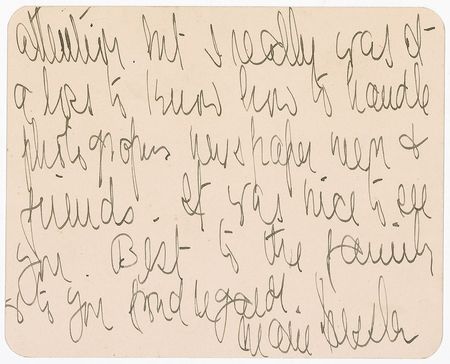 attention but I really was at
a loss to know how to handle
photographers newspaper men &
friends. It was nice to see
you. Best to the family
& to you fond regards
Marie